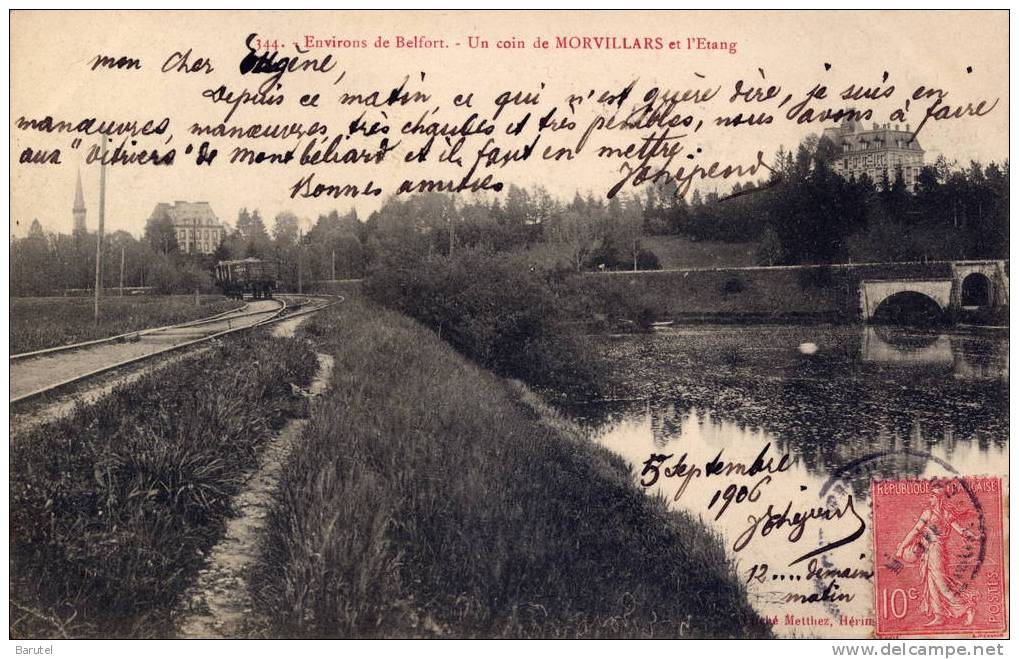 344. - Environs de Belfort. - Un coin de MORVILLARS et l'Etang
mon cher Eugène,
Depuis ce matin, ce qui n'est guère dire, je suis en
manœuvres, manœuvres, très chaudes et très pénibles, nous avons à faire
aux "Vitriers" de montbéliard et il faut en mettre.
Bonnes amitiés
5 Septembre
1906
12.... demain
matin
Cliché Metthez, Héri
RÉPUBLIQUE FRANÇAISE
10c
POSTES
Barutel
www.delcampe.net